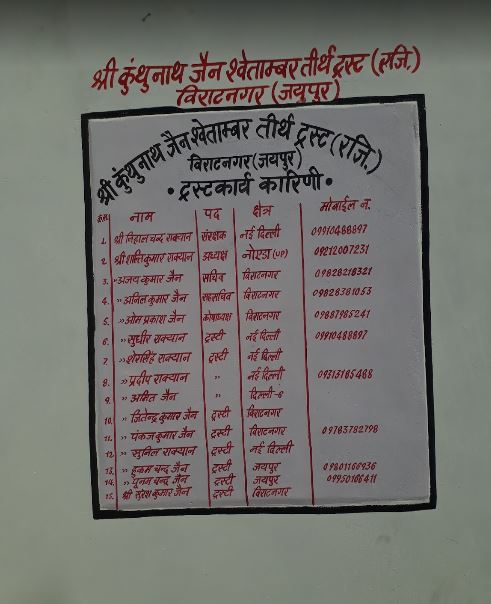 श्री कुंथुनाथ जैन श्वेताम्बर तीर्थ ट्रस्ट (रजि.)
विराटनगर (जयपुर)
श्री कुंथुनाथ जैन श्वेताम्बर तीर्थ ट्रस्ट (रजि.)
विराटनगर (जयपुर)
• ट्रस्टकार्य कारिणी •
क्र.सं. नाम पद क्षेत्र मोबाईल न.
1. श्री निहाल चन्द राक्यान संरक्षक नई दिल्ली 09910488897
2. श्री शान्ति कुमार राक्यान अध्यक्ष नोएडा (UP) 09212007231
3. " अजय कुमार जैन सचिव विराटनगर 09828218321
4. " अनिल कुमार जैन सहसचिव विराटनगर 09828381053
5. " ओम प्रकाश जैन कोषाध्यक्ष विराटनगर 09887985241
6. " सुधीर राक्यान ट्रस्टी नई दिल्ली 09910488897
7. " शेरसिंह राक्यान ट्रस्टी नई दिल्ली
8. " प्रदीप राक्यान " नई दिल्ली 09313185468
9. " अमित जैन " दिल्ली-6
10. " जितेन्द्र कुमार जैन ट्रस्टी विराटनगर
11. " पंकज कुमार जैन ट्रस्टी विराटनगर 09783782798
12. " सुनिल राक्यान ट्रस्टी नई दिल्ली
13. " हुकम चन्द जैन ट्रस्टी जयपुर 09801166936
14. " पूनम चन्द जैन ट्रस्टी जयपुर 09950186411
15. श्री सुरेश कुमार जैन ट्रस्टी विराटनगर